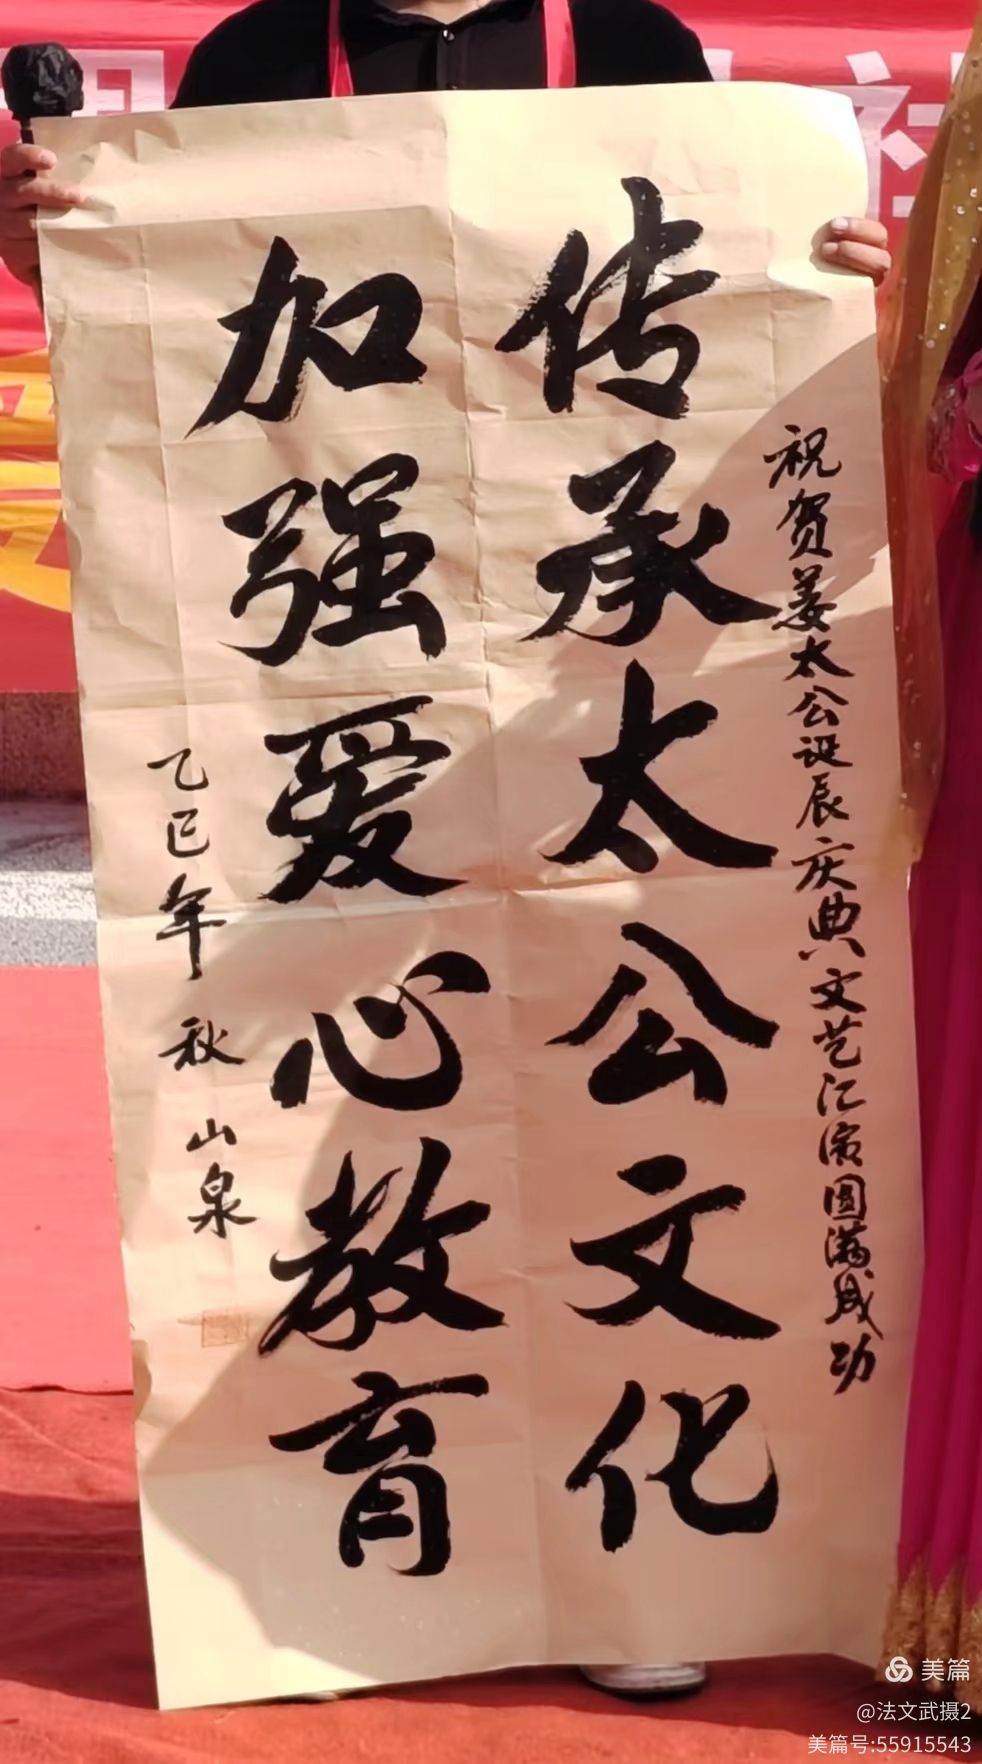 祝贺姜太公诞辰庆典文艺汇演圆满成功
传承太公文化
加强爱心教育
乙巳年 秋 山泉
社
美篇
@法文武摄2
美篇号:55915543